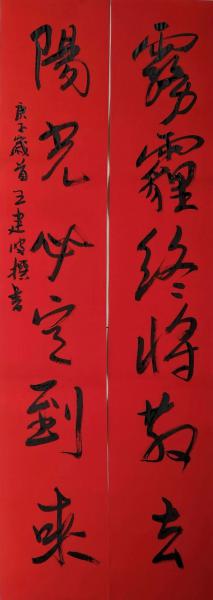 霧霾終將散去
陽光必定到來
庚子歲首王建波撰書